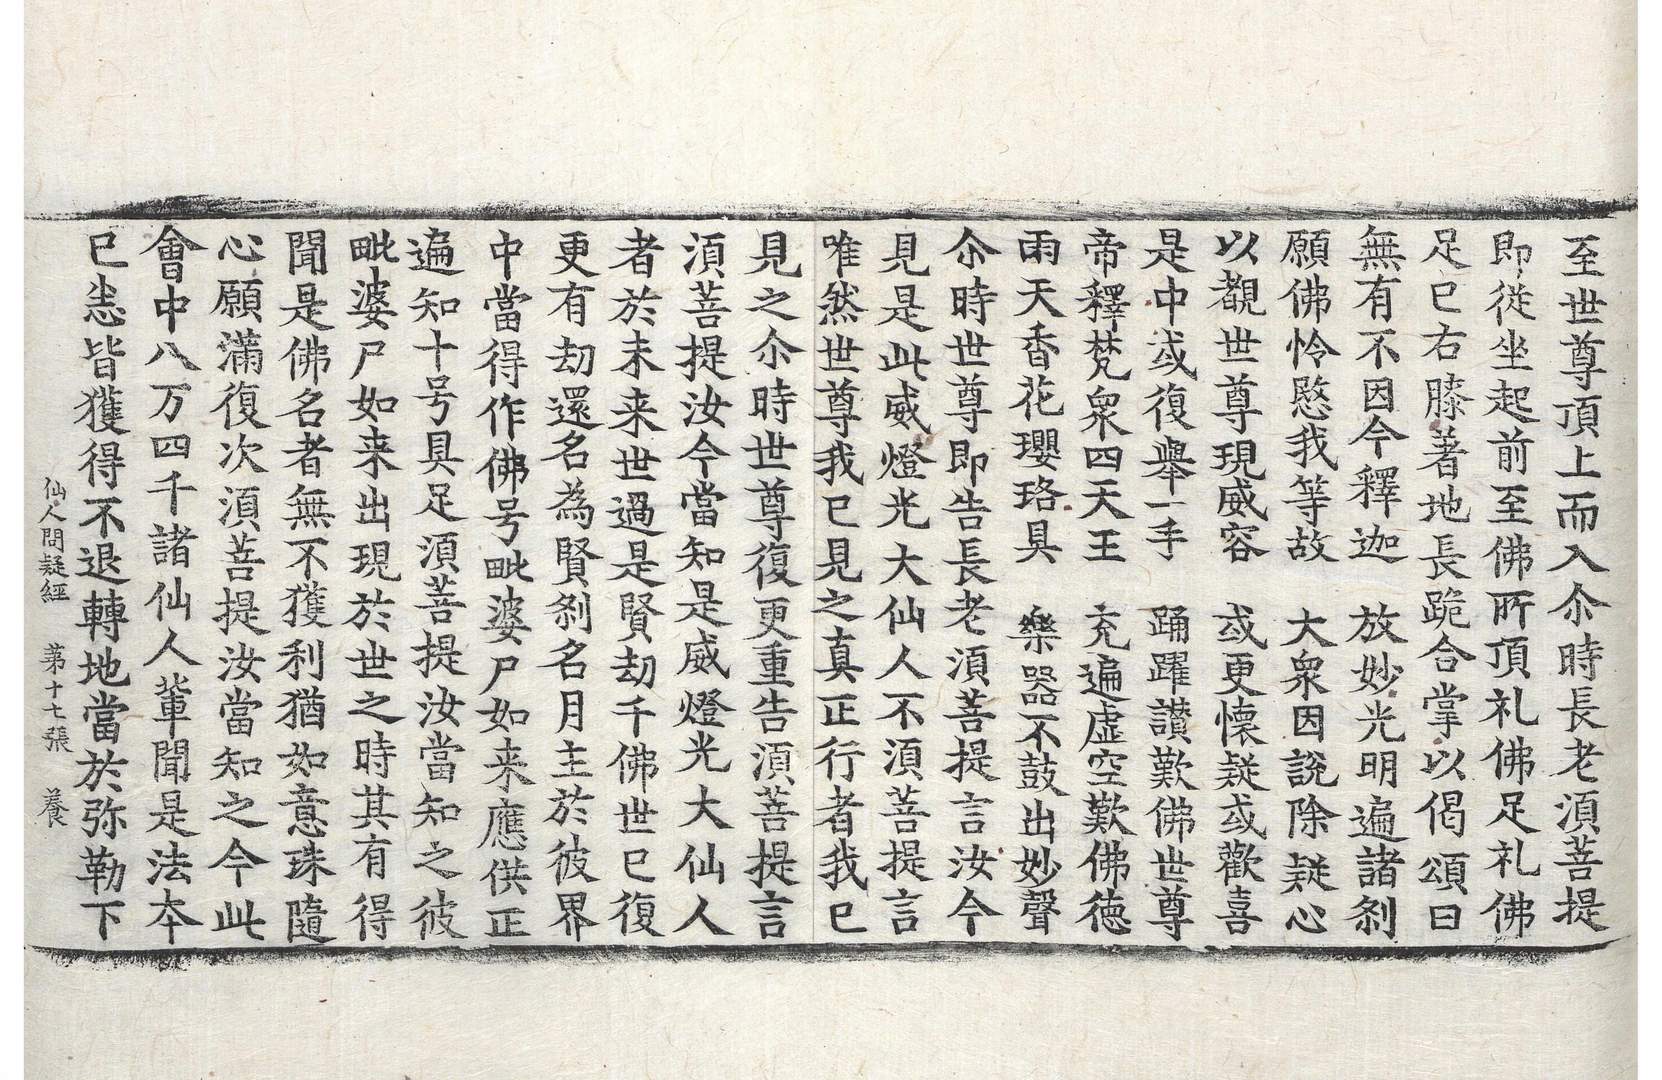 至世尊頂上而入尒時長老湏菩提
即從坐起前至佛所頂礼佛足礼佛
足已右膝著地長跪合掌以偈頌曰
無有不因今釋迦　放妙光明遍諸刹
願佛怜愍我等故　大衆因說除疑心
以覩世尊現威容　或更懷疑或歡喜
是中或復舉一手　踊躍讃歎佛世尊
帝釋梵衆四天王　充遍虛空歎佛德
雨天香花瓔珞具　樂器不鼓出妙聲
尒時世尊即告長老湏菩提言汝今
見是此威燈光大仙人不湏菩提言
唯然世尊我已見之真正行者我已
見之尒時世尊復更重告湏菩提言
湏菩提汝今當知是威燈光大仙人
者於未来世過是賢劫千佛世已復
更有劫還名為賢刹名月主於彼界
中當得作佛号毗婆尸如来應供正
遍知十号具足湏菩提汝當知之彼
毗婆尸如来出現於世之時其有得
聞是佛名者無不獲利猶如意珠隨
心願滿復次湏菩提汝當知之今此
會中八万四千諸仙人輩聞是法夲
已悉皆獲得不退轉地當於弥勒下
仙人問疑經　第十七張　養